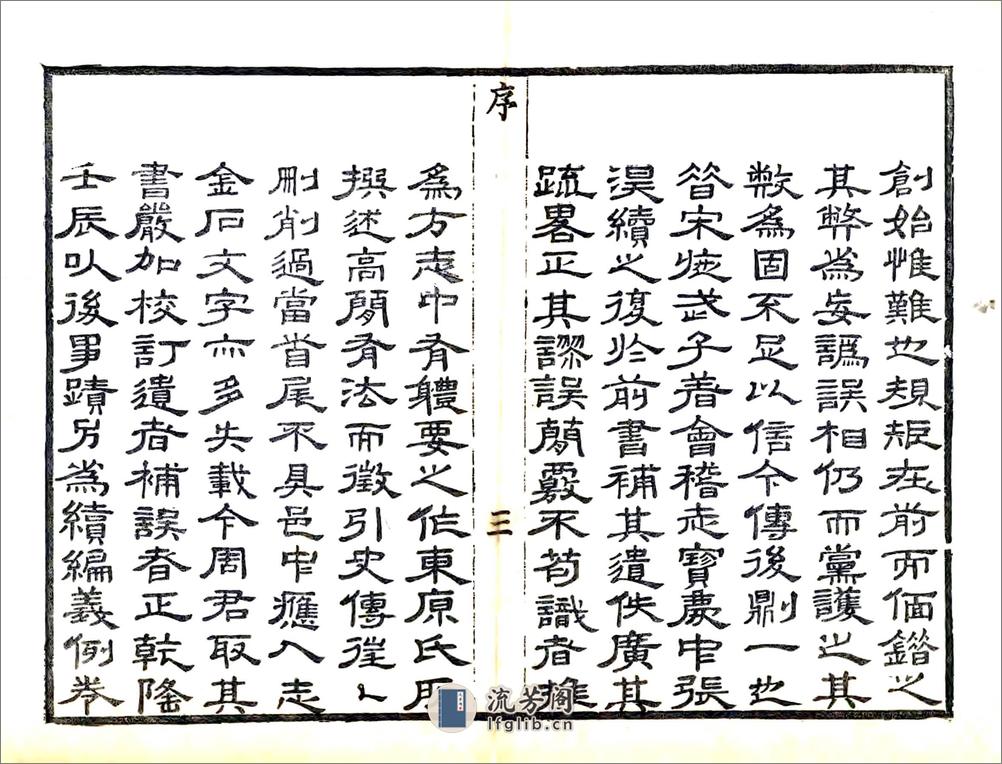 創始惟難也規矩在前而偭錯之
其弊為妄譌誤相仍而黨護之其
弊為固不足以信今傳後則一也
昔宋施武子善會稽志寶慶中張
淏續之復於前書補其遺佚廣其
疏畧正其謬誤簡覈不苟識者推
序
三
為方志中有體要之作東原氏所
撰述高簡有法而徵引史傳往〻
刪削過當首尾不具邑中應入志
金石文字亦多失載今周君取其
書嚴加校訂遺者補誤者正乾隆
壬辰以後事蹟另為續編義例卷
流芳阁
lfglib.cn